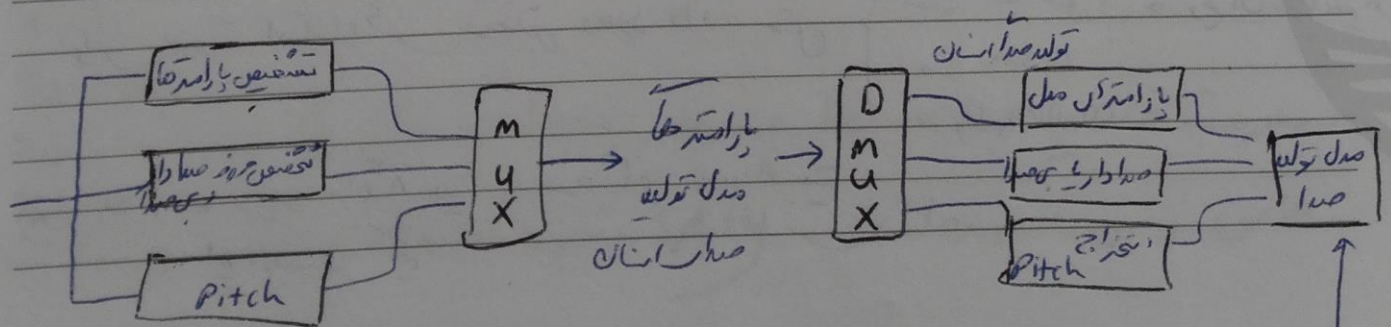 تشخیص پارامترها
تشخیص حروف صدا دار
بی صدا
Pitch
mux
پارامترها
مدل تولید
صدا انسان
DMUX
تولید صدا انسان
پارامترهای مدل
صدادار یا بی صدا
استخراج
Pitch
مدل تولید
صدا